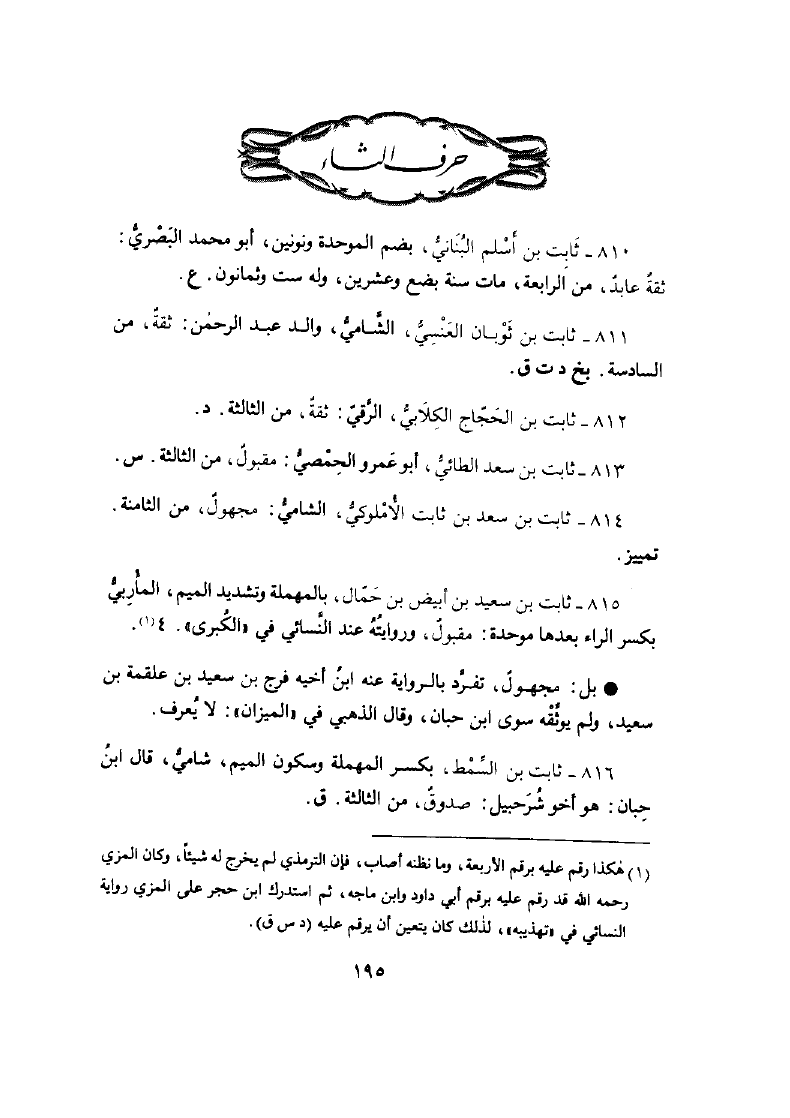 حرف الثاء
٨١٠ - ثَابِت بن أَسْلم البُنَانيُّ، بضم الموحدة ونونين، أبو محمد البَصْريُّ:
ثقةٌ عابدٌ، من الرابعة، مات سنة بضع وعشرين، وله ست وثمانون. ع.
٨١١ - ثابت بن ثَوْبان العَنْسِيُّ، الشَّاميُّ، والد عبد الرحمٰن: ثقةٌ، من
السادسة. بخ د ت ق.
٨١٢ - ثابت بن الحَجّاج الكِلَابيُّ، الرَّقيّ: ثقةٌ، من الثالثة. د.
٨١٣ - ثابت بن سعد الطائيُّ، أبو عَمرو الحِمْصيُّ: مقبولٌ، من الثالثة. س.
٨١٤ - ثابت بن سعد بن ثابت الأُمْلوكيُّ، الشاميُّ: مجهولٌ، من الثامنة.
تمييز.
٨١٥ - ثابت بن سعيد بن أبيض بن حَمّال، بالمهملة وتشديد الميم، المأْرِبيُّ
بكسر الراء بعدها موحدة: مقبولٌ، وروايتُهُ عند النَّسائي في «الكُبرى». ٤(١).
● بل: مجهولٌ، تفرَّد بالرواية عنه ابنُ أخيه فرج بن سعيد بن علقمة بن
سعيد، ولم يوثِّقْه سوى ابن حبان، وقال الذهبي في «الميزان»: لا يُعرف.
٨١٦ - ثابت بن السِّمْط، بكسر المهملة وسكون الميم، شاميٌّ، قال ابنُ
حِبان: هو أخو شُرَحبيل: صدوقٌ، من الثالثة. ق.
(١) هٰكذا رقم عليه برقم الأربعة، وما نظنه أصاب، فإن الترمذي لم يخرج له شيئاً، وكان المزي
رحمه الله قد رقم عليه برقم أبي داود وابن ماجه، ثم استدرك ابن حجر على المزي رواية
النسائي في «تهذيبه»، لذٰلك كان يتعين أن يرقم عليه (د س ق).
١٩٥